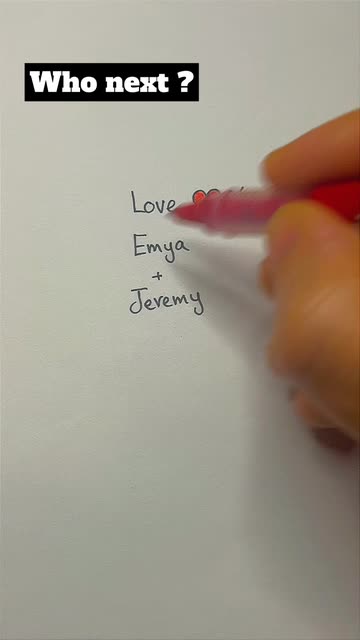 Who next ?
Love
Emya
+
Jeremy